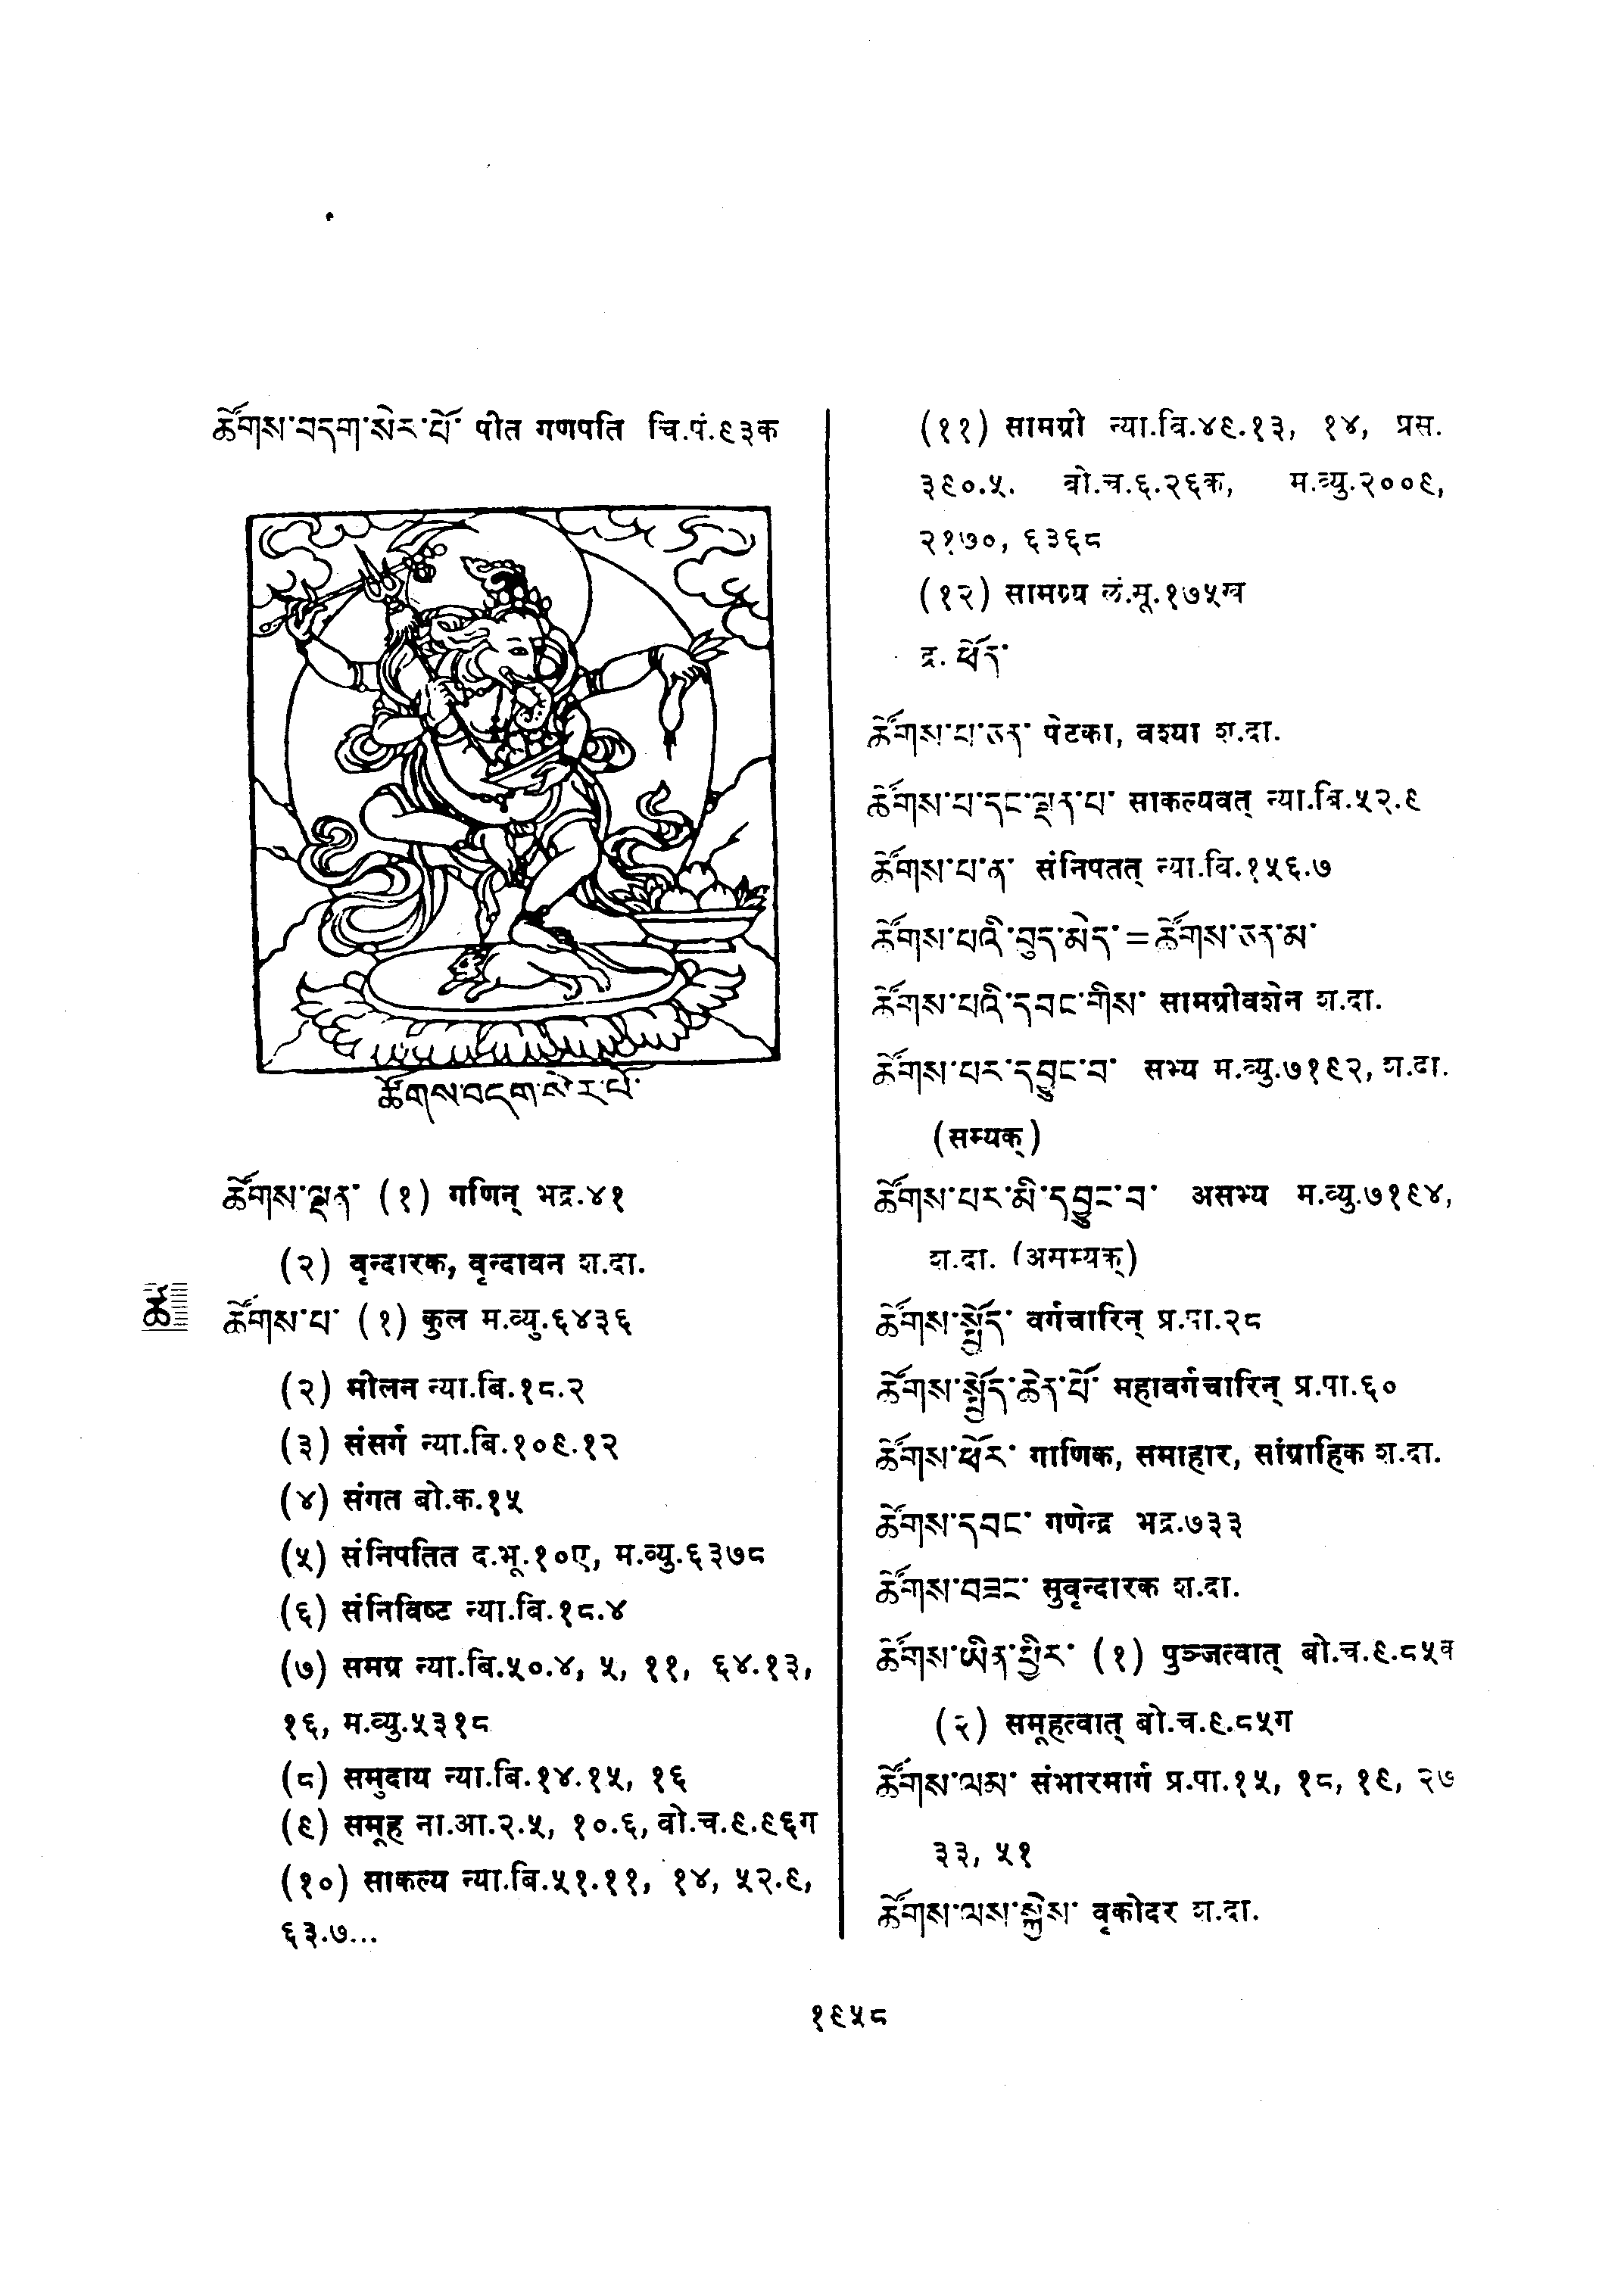 ཚོགས་བདག་སེར་པོ་ पीत गणपति चि.पं.९३क
ཚོགས་བདག་སེར་པོ་
ཚོགས་ལྡན་ (१) गणिन् भद्र.४१
(२) वृन्दारक, वृन्दायन श.दा.
ཚོ
ཚོགས་པ་ (१) कुल म.व्यु.६४३६
(२) मीलन न्या.बि.१८.२
(३) संसर्ग न्या.बि.१०९.१२
(४) संगत बो.क.१५
(५) संनिपतित द.भू.१०ए, म.व्यु.६३७८
(६) संनिविष्ट न्या.बि.१८.४
(७) समग्र न्या.बि.५०.४, ५, ११, ६४.१३,
१६, म.व्यु.५३१८
(८) समुदाय न्या.बि.१४.१५, १६
(९) समूह ना.आ.२.५, १०.६, बो.च.९.९६ग
(१०) साकल्य न्या.बि.५१.११, १४, ५२.९,
६३.७...
(११) सामग्री न्या.बि.४९.१३, १४, प्रस.
३९०.५. बो.च.६.२६क, म.व्यु.२००९,
२१७०, ६३६८
(१२) सामग्र्य लं.मू.१७५ख
द्र. ཕྲད་
ཚོགས་པ་ཅན་ पेटका, वश्या श.दा.
ཚོགས་པ་དང་ལྡན་པ་ साकल्यवत् न्या.बि.५२.९
ཚོགས་པ་ན་ संनिपतत् न्या.बि.१५६.७
ཚོགས་པའི་བུད་མེད་=ཚོགས་ཅན་མ་
ཚོགས་པའི་དབང་གིས་ सामग्रीवशेन श.दा.
ཚོགས་པར་དབྱུང་བ་ सभ्य म.व्यु.७१९२, श.दा.
(सम्यक्)
ཚོགས་པར་མི་དབྱུང་བ་ असभ्य म.व्यु.७१९४,
श.दा. (असम्यक्)
ཚོགས་སྤྱོད་ वर्गचारिन् प्र.पा.२८
ཚོགས་སྤྱོད་ཆེན་པོ་ महावर्गचारिन् प्र.पा.६०
ཚོགས་ཕོར་ गाणिक, समाहार, सांग्राहिक श.दा.
ཚོགས་དབང་ गणेन्द्र भद्र.७३३
ཚོགས་བཟང་ सुवृन्दारक श.दा.
ཚོགས་ཡིན་ཕྱིར་ (१) पुञ्जत्वात् बो.च.९.८५व
(२) समूहत्वात् बो.च.९.८५ग
ཚོགས་ལམ་ संभारमार्ग प्र.पा.१५, १८, १९, २७
३३, ५१
ཚོགས་ལས་སྐྱེས་ वृकोदर श.दा.
१९५८